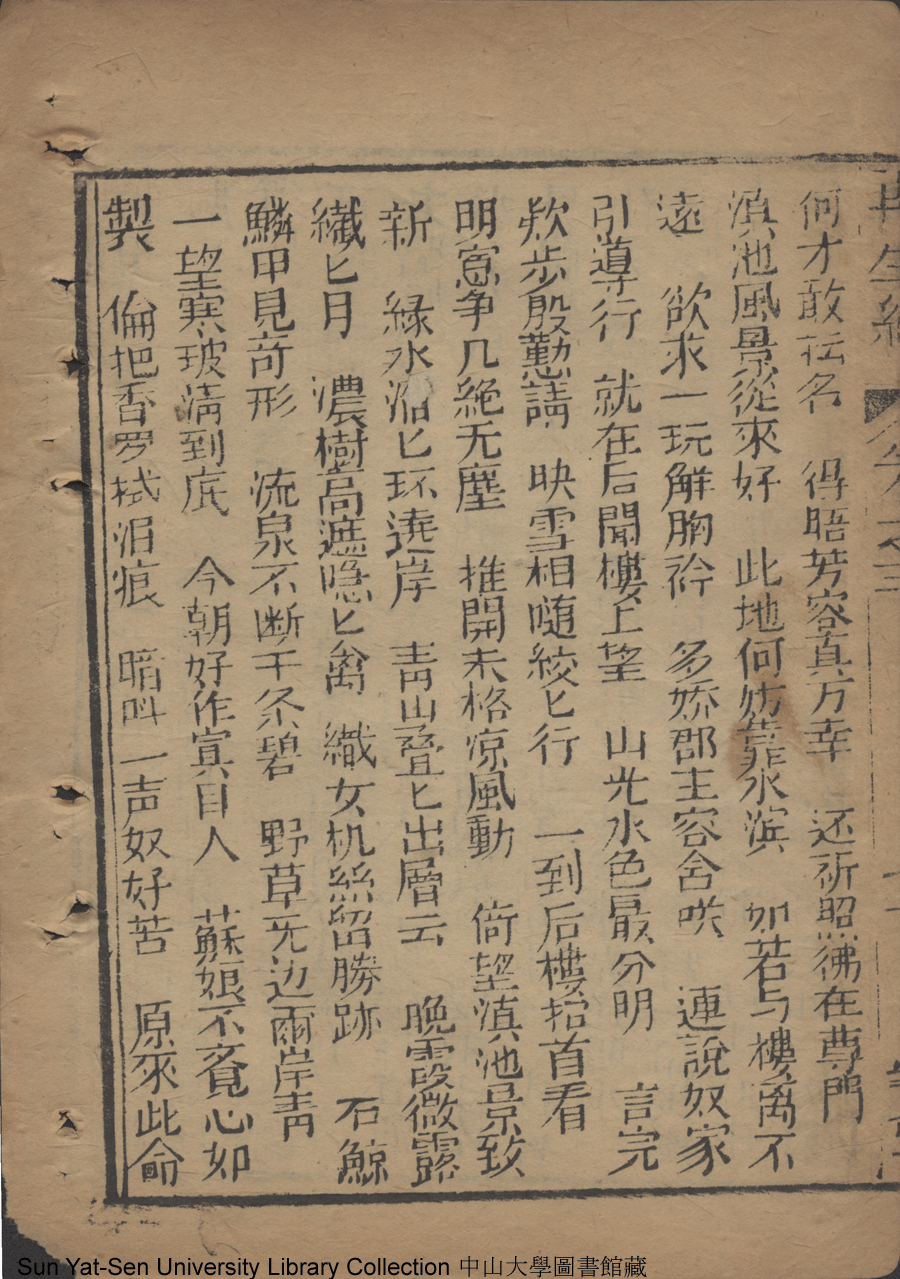 何才敢坛名　得晤芳容真万幸　还祈照彿在尊門
滇池風景從來好　此地何妨靠水滨　如若与樓离不
遠　欲求一玩解胸衿　多娇郡主容含咲　連說奴家
引導行　就在后閣樓上望　山光水色最分明　言完
欵步殷勤請　映雪相随綾匕行　一到后樓抬首看
明窓争几絶无塵　推開未格凉風動　倚望滇池景致
新　緑水滔匕环遶岸　青山叠匕出層云　晚霞微露
纖匕月　濃樹高遮隐匕禽　織女机絲留勝跡　石鯨
鱗甲見奇形　流泉不断千条碧　野草无边兩岸青
一望寒玻清到底　今朝好作寘目人　蘇娘不覔心如
製　偷把香罗拭泪痕　暗叫一声奴好苦　原來此命
Sun Yat-Sen University Library Collection 中山大學圖書館藏